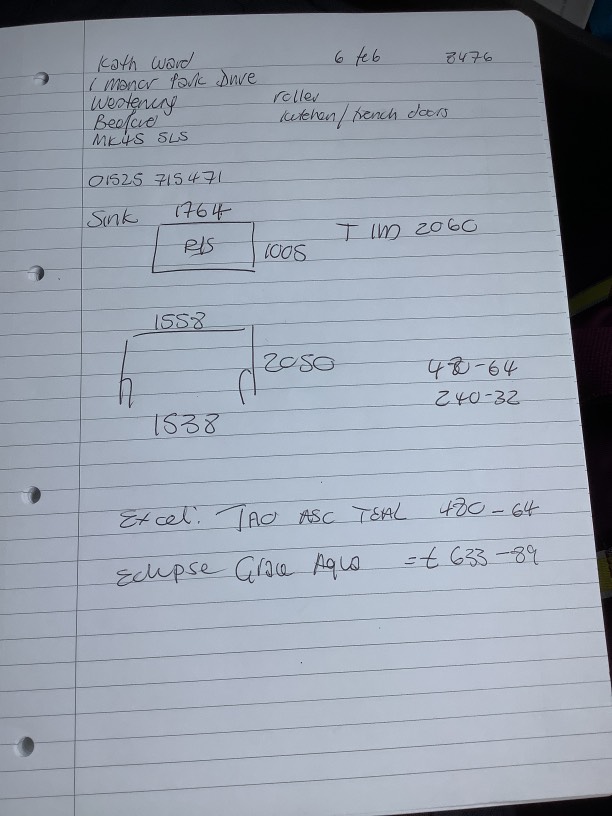 Kath Ward 6 feb 8476
1 manor Park Drive
Westening roller
Bedford kitchen/french doors
MK45 5LS
01525 715471
Sink 1764
R/S 1005 T 1M 2060
1558
2050 480-64
240-32
1538
Excel. TAO ASC TEAL 480-64
Eclipse Grace Aqua =£ 633-89